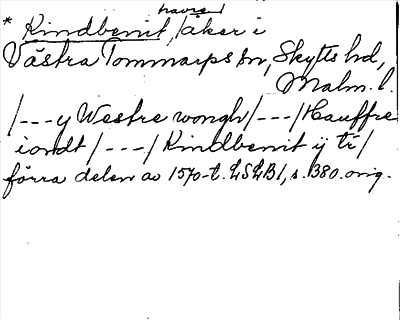 havre
* Kindbenit, åker i
Västra Tommarps sn, Skytts hd,
Malm. l.
/---y Westre wongh/---/Hauffre
iondt/---/Kindbenit ij tr/
förra delen av 1570-t. LSLB1, s. 380. orig.